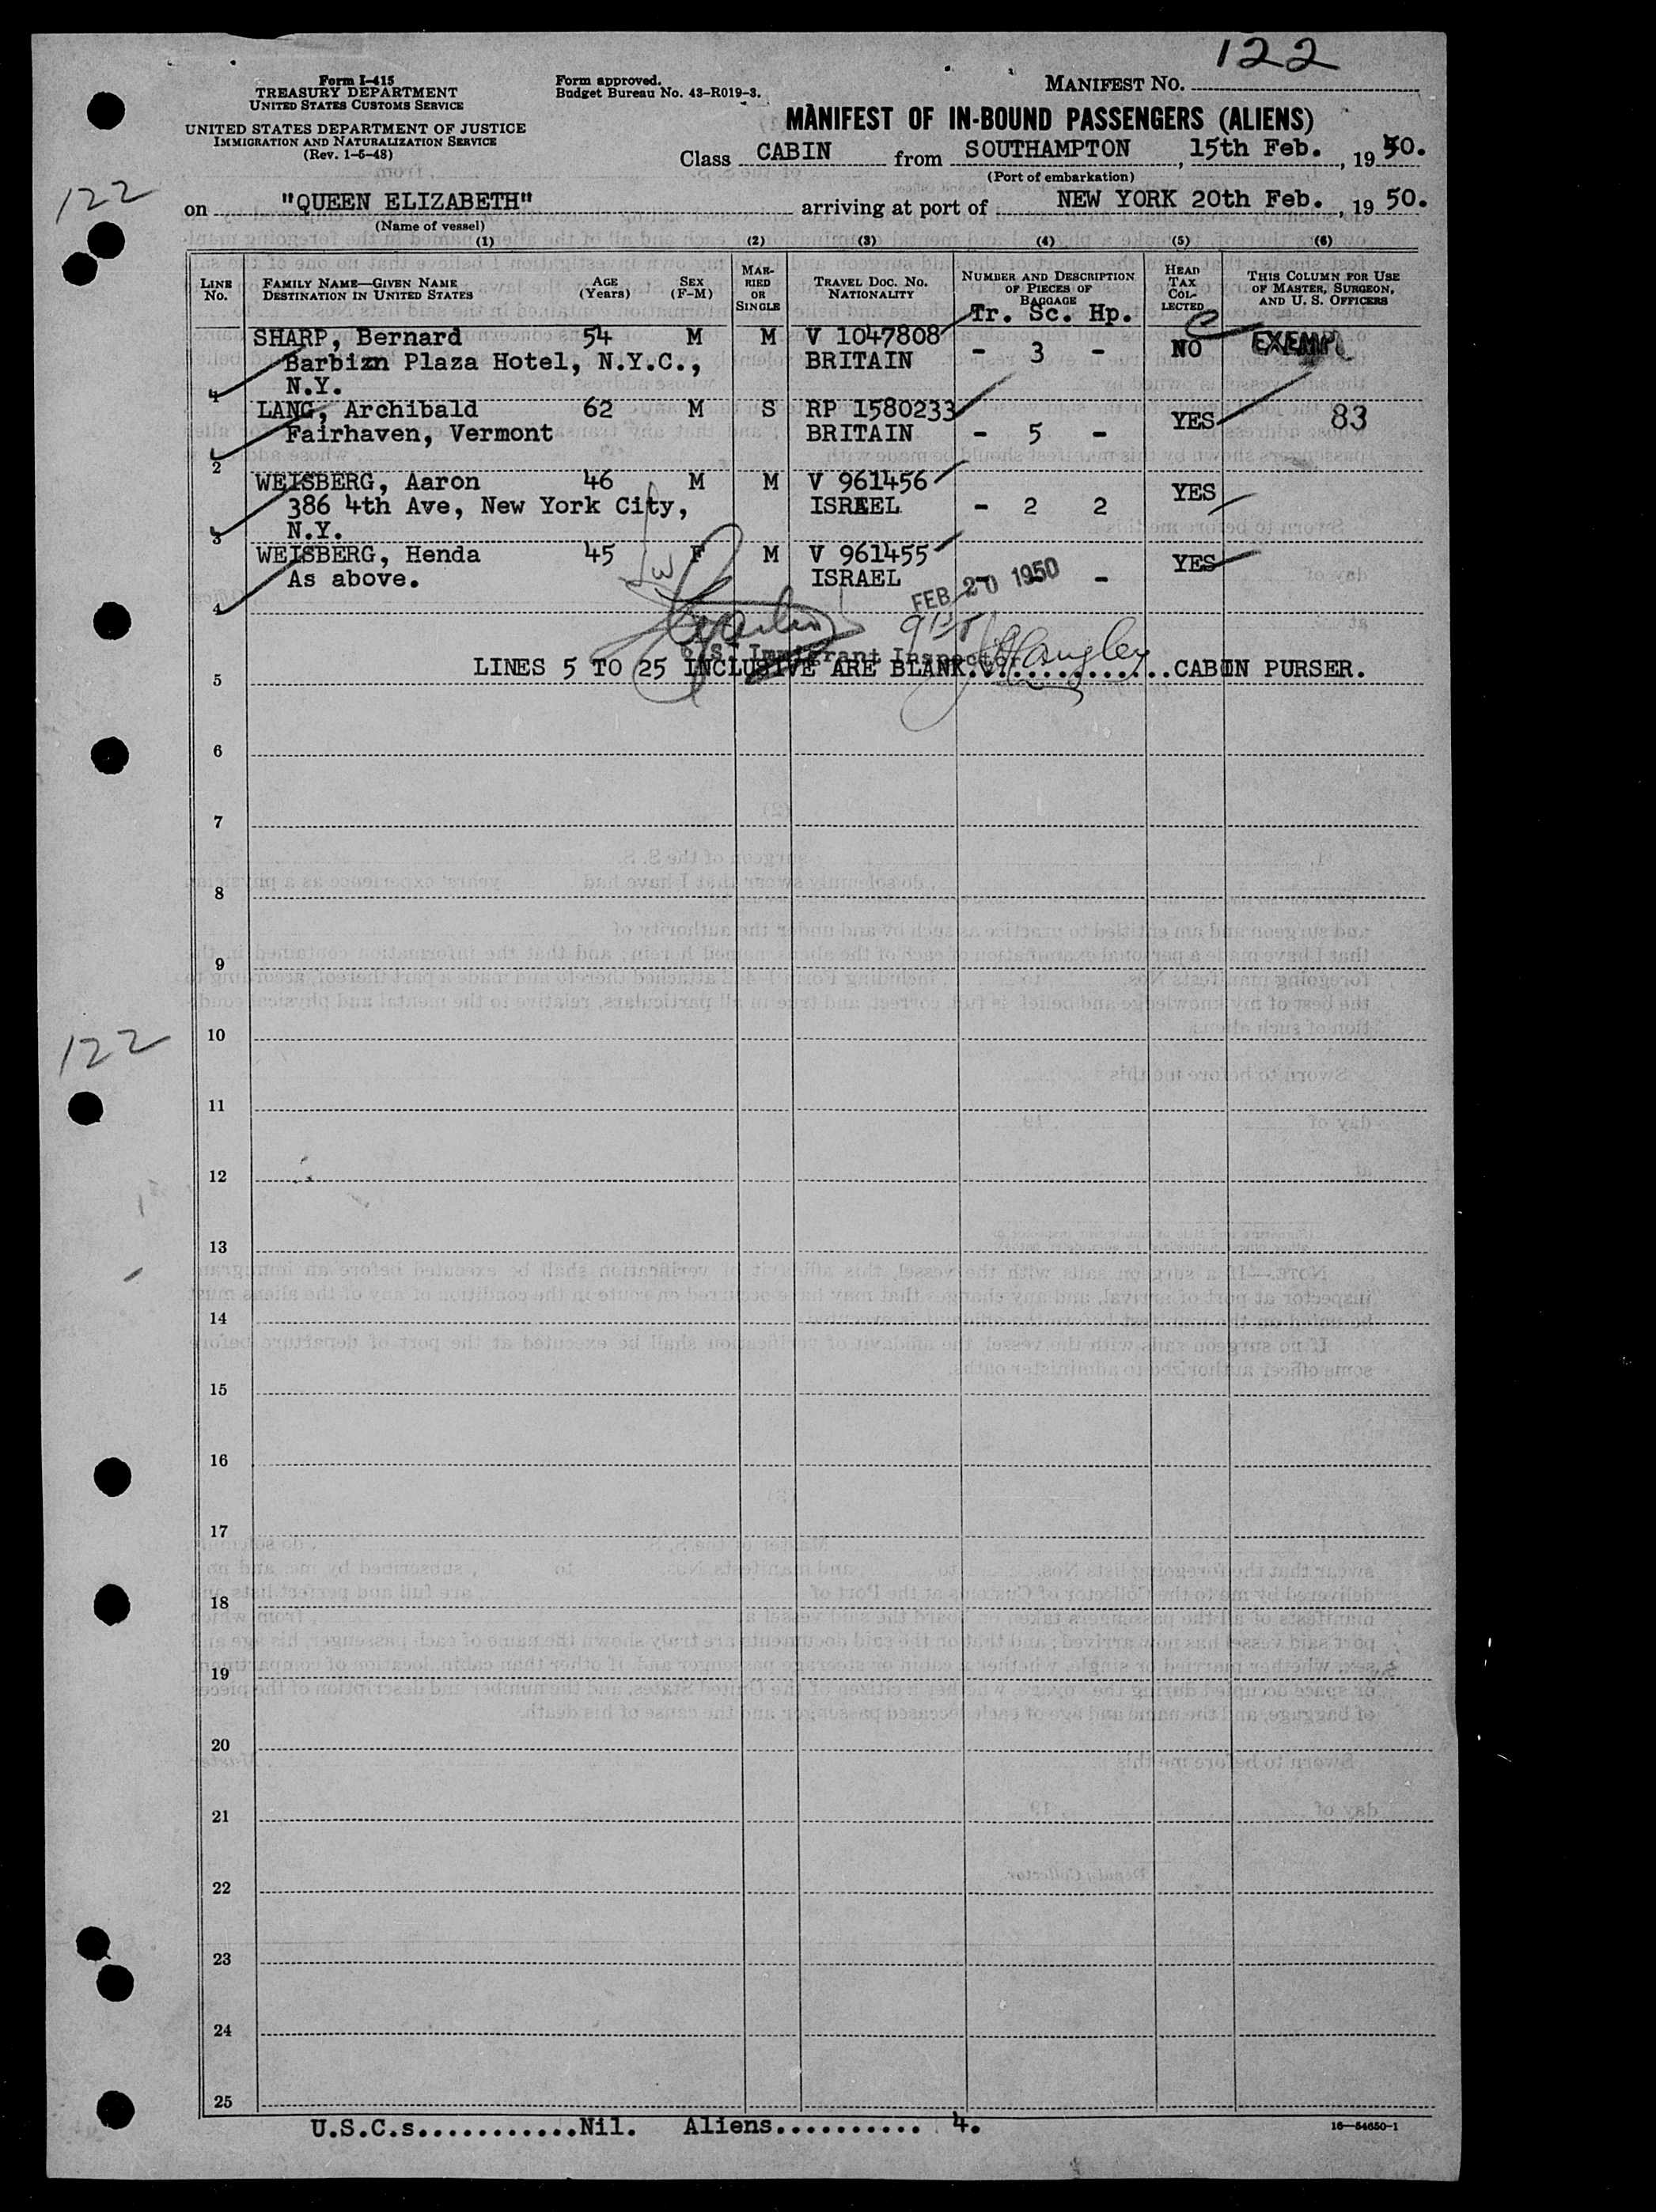 122
Form I-415
TREASURY DEPARTMENT
UNITED STATES CUSTOMS SERVICE
UNITED STATES DEPARTMENT OF JUSTICE
IMMIGRATION AND NATURALIZATION SERVICE
(Rev. 1-5-48)
Form approved.
Budget Bureau No. 43-R019-3.
MANIFEST NO.
MANIFEST OF IN-BOUND PASSENGERS (ALIENS)
Class CABIN from SOUTHAMPTON, 15th Feb., 1950.
(Port of embarkation)
122
on "QUEEN ELIZABETH" arriving at port of NEW YORK 20th Feb., 1950.
(Name of vessel)
(1) (2) (3) (4) (5) (6)
LINE No.
FAMILY NAME—GIVEN NAME
DESTINATION IN UNITED STATES
AGE (Years)
SEX (F-M)
MARRIED OR SINGLE
TRAVEL DOC. NO.
NATIONALITY
NUMBER AND DESCRIPTION OF PIECES OF BAGGAGE
Tr. Sc. Hp.
HEAD TAX COLLECTED
THIS COLUMN FOR USE OF MASTER, SURGEON, AND U. S. OFFICERS
SHARP, Bernard 54 M M V 1047808
Barbizn Plaza Hotel, N.Y.C., BRITAIN - 3 - NO EXEMPT
1 N.Y.
LANG, Archibald 62 M S RP 1580233 YES 83
Fairhaven, Vermont BRITAIN - 5 -
2
WEISBERG, Aaron 46 M M V 961456 YES
386 4th Ave, New York City, ISRAEL - 2 2
3 N.Y.
WEISBERG, Henda 45 F M V 961455 YES
As above. ISRAEL - - -
4
FEB 20 1950
U.S. Immigrant Inspector
5 LINES 5 TO 25 INCLUSIVE ARE BLANK. Langley CABIN PURSER.
6
7
8
9
10
122
11
12
13
14
15
16
17
18
19
20
21
22
23
24
25
U.S.C.s............Nil. Aliens........... 4.
16—54650-1